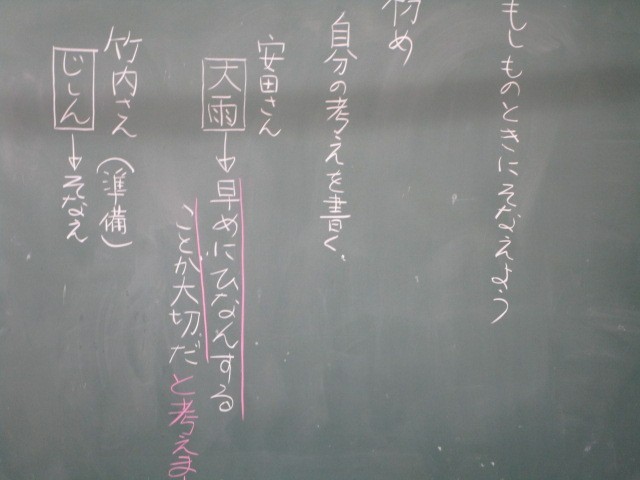 もしものときにそなえよう
初め
自分の考えを書く。
安田さん
大雨→早めにひなんする
ことが大切だと考えま
竹内さん（準備）
じしん→そなえ